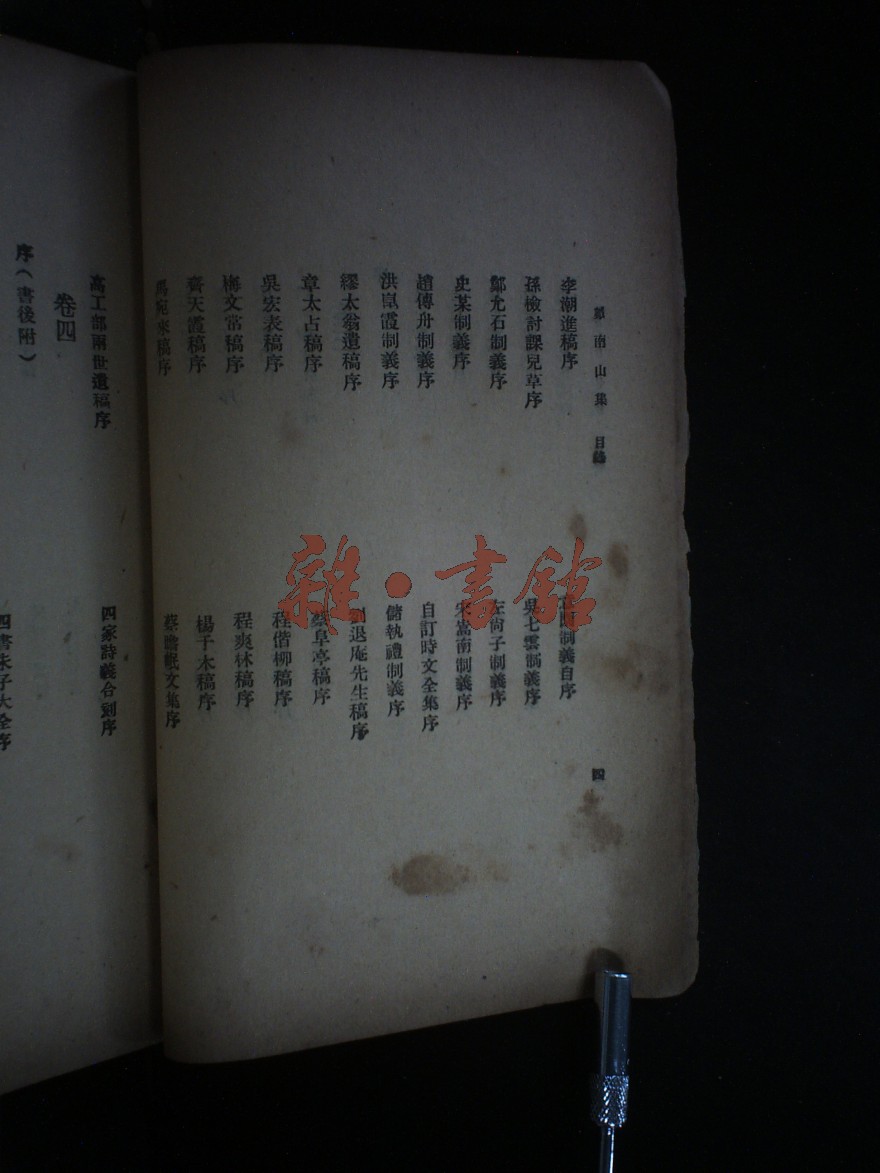 南山集 目錄
四
李潮進稿序
孫檢討課兒草序
鄭允石制義序
史某制義序
趙傳舟制義序
洪崑霞制義序
繆太翁遺稿序
章太占稿序
吳宏表稿序
梅文常稿序
齊天霞稿序
馬宛來稿序
制義自序
吳七雲制義序
左尚子制義序
宋嵩南制義序
自訂時文全集序
儲執禮制義序
劉退庵先生稿序
蔡阜亭稿序
程偕柳稿序
程爽林稿序
楊千木稿序
蔡瞻岷文集序
高工部兩世遺稿序
四家詩義合刻序
卷四
序（書後附）
四書朱子大全序
雜·書館